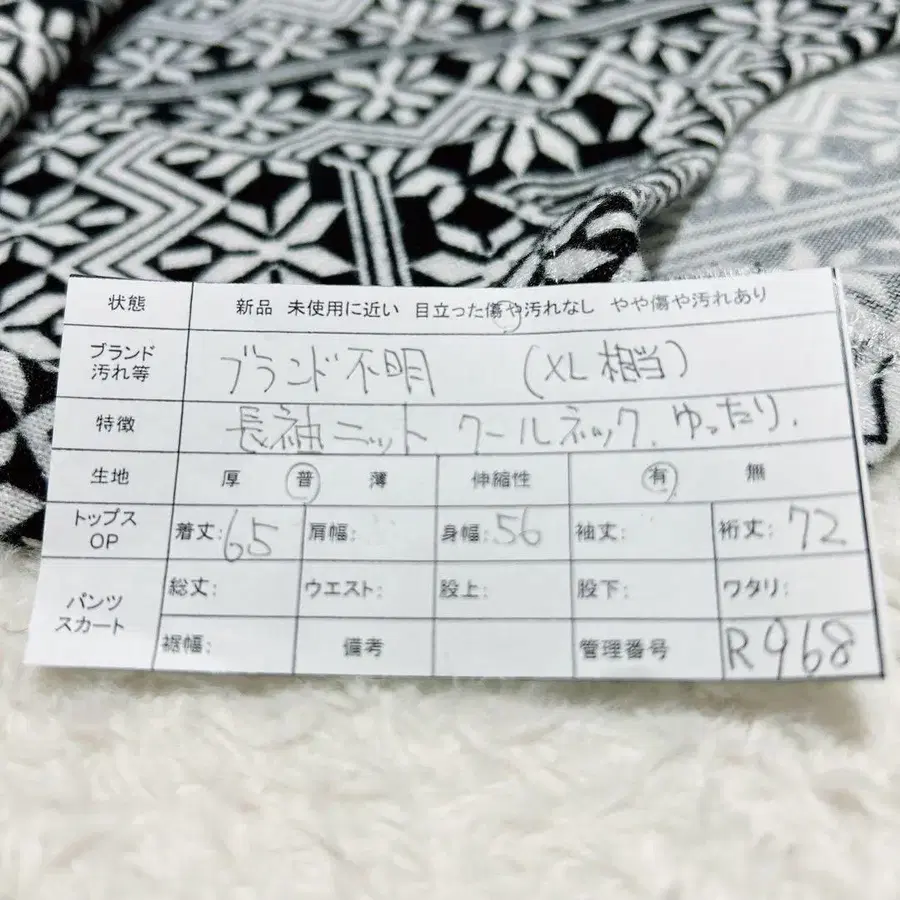 状態 新品 未使用に近い 目立った傷や汚れなし やや傷や汚れあり
ブランド 汚れ等 ブランド不明 (XL相当)
特徴 長袖ニット クールネック、ゆったり、
生地 厚 普 薄 伸縮性 有 無
トップス OP 着丈:65 肩幅: 身幅:56 袖丈: 裄丈:72
パンツ スカート 総丈: ウエスト: 股上: 股下: ワタリ:
裾幅: 備考 管理番号 R968